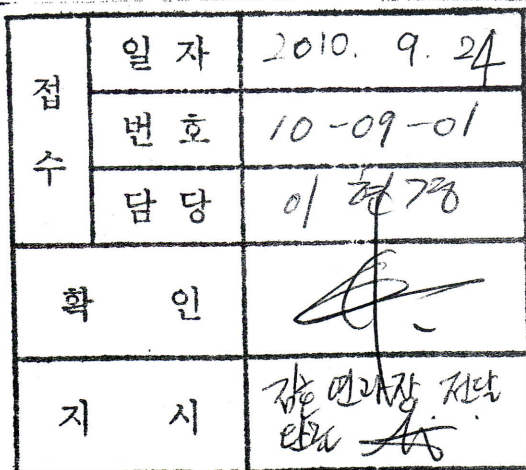 접수
일 자 2010. 9. 24
번 호 10-09-01
담 당 이현경
확 인
지 시 전달